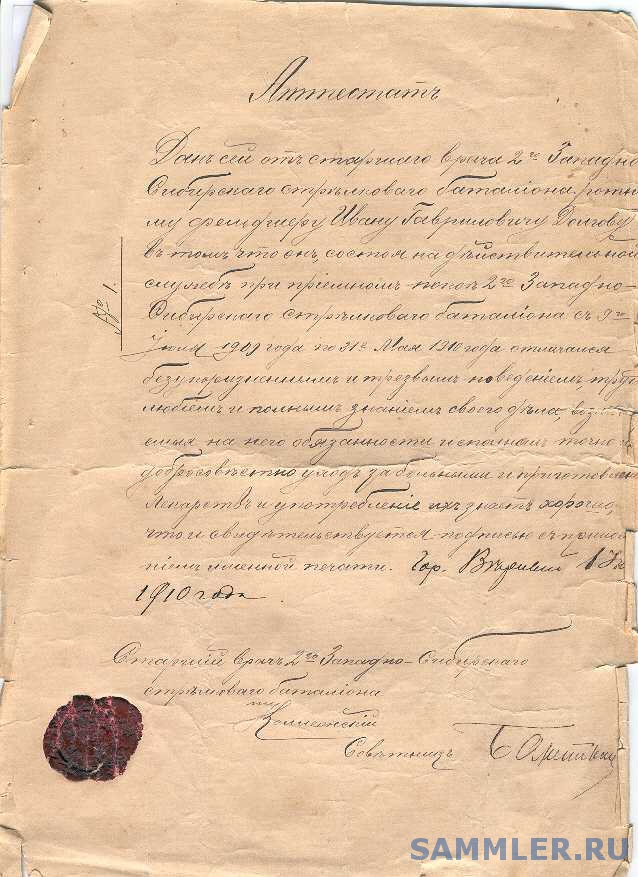 Аттестатъ
Данъ сей отъ старшаго врача 2го Западно
Сибирскаго стрѣлковаго баталіона ротно
му фельдшеру Ивану Гавриловичу Долгову
въ томъ что онъ, состоя на дѣйствительной
службѣ при пріемномъ покоѣ 2го Западно-
Сибирскаго стрѣлковаго баталіона съ 9го
Іюля 1909 года по 31е Мая 1910 года отличался
безукоризненнымъ и трезвымъ поведеніемъ, трудо
любіемъ и полнымъ знаніемъ своего дѣла, возла
емыя на него обязанности исполнялъ точно и
добросовѣстно уходъ за больными и приготовлен
лекарствъ и употребленіе ихъ знаетъ хорошо,
что и свидѣтельствуется подписью съ прилож
ніемъ именной печати. Гор. Вѣрный 1
1910 года
№ 1.
Старшій врачъ 2го Западно-Сибирскаго
стрѣлковаго баталіона
Совѣтникъ
SAMMLER.RU